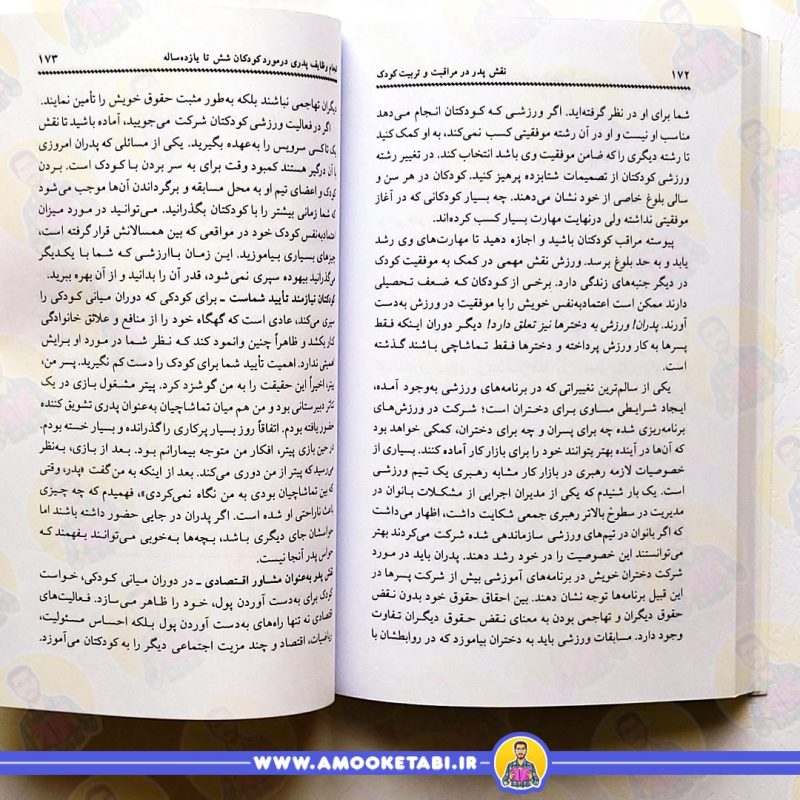 ۱۷۲ نقش پدر در مراقبت و تربیت کودک
شما برای او در نظر گرفته‌اید. اگر ورزشی که کودکتان انجام می‌دهد
مناسب او نیست و او در آن رشته موفقیتی کسب نمی‌کند، به او کمک کنید
تا رشته دیگری را که ضامن موفقیت وی باشد انتخاب کند. در تغییر رشته
ورزشی کودکتان از تصمیمات شتابزده پرهیز کنید. کودکان در هر سن و
سالی بلوغ خاصی از خود نشان می‌دهند. چه بسیار کودکانی که در آغاز
موفقیتی نداشته ولی درنهایت مهارت بسیار کسب کرده‌اند.
پیوسته مراقب کودکتان باشید و اجازه دهید تا مهارت‌های وی رشد
یابد و به حد بلوغ برسد. ورزش نقش مهمی در کمک به موفقیت کودک
در دیگر جنبه‌های زندگی دارد. برخی از کودکان که ضعف تحصیلی
دارند ممکن است اعتمادبه‌نفس خویش را با موفقیت در ورزش به‌دست
آورند. پدران! ورزش به دخترها نیز تعلق دارد! دیگر دوران اینکه فقط
پسرها به کار ورزش پرداخته و دخترها فقط تماشاچی باشند گذشته
است.
یکی از سالم‌ترین تغییراتی که در برنامه‌های ورزشی به‌وجود آمده،
ایجاد شرایطی مساوی برای دختران است؛ شرکت در ورزش‌های
برنامه‌ریزی شده چه برای پسران و چه برای دختران، کمکی خواهد بود
که آن‌ها در آینده بهتر بتوانند خود را برای بازار کار آماده کنند. بسیاری از
خصوصیات لازمه رهبری در بازار کار مشابه رهبری یک تیم ورزشی
است. یک بار شنیدم که یکی از مدیران اجرایی از مشکلات بانوان در
مدیریت در سطوح بالاتر رهبری جمعی شکایت داشت، اظهار می‌داشت
که اگر بانوان در تیم‌های ورزشی سازماندهی شده شرکت می‌کردند بهتر
می‌توانستند این خصوصیت را در خود رشد دهند. پدران باید در مورد
شرکت دختران خویش در برنامه‌های آموزشی بیش از شرکت پسرها در
این قبیل برنامه‌ها توجه نشان دهند. بین احقاق حقوق خود بدون نقض
حقوق دیگران و تهاجمی بودن به معنای نقض حقوق دیگران تفاوت
وجود دارد. مسابقات ورزشی باید به دختران بیاموزد که در روابطشان با
انجام وظایف پدری درمورد کودکان شش تا یازده‌ساله ۱۷۳
دیگران تهاجمی نباشند بلکه به‌طور مثبت حقوق خویش را تأمین نمایند.
اگر در فعالیت ورزشی کودکتان شرکت می‌جویید، آماده باشید تا نقش
یک تاکسی سرویس را به‌عهده بگیرید. یکی از مسائلی که پدران امروزی
با آن درگیر هستند کمبود وقت برای به سر بردن با کودک است. بردن
کودک و اعضای تیم او به محل مسابقه و برگرداندن آن‌ها موجب می‌شود
که شما زمانی بیشتر را با کودکتان بگذرانید. می‌توانید در مورد میزان
اعتمادبه‌نفس کودک خود در مواقعی که بین همسالانش قرار گرفته است،
چیزهای بسیاری بیاموزید. این زمان باارزشی که شما با یکدیگر
می‌گذرانید بیهوده سپری نمی‌شود، قدر آن را بدانید و از آن بهره ببرید.
کودکتان نیازمند تأیید شماست ـ برای کودکی که دوران میانی کودکی را
سپری می‌کند، عادی است که گهگاه خود را از منافع و علائق خانوادگی
کنار بکشد و ظاهراً چنین وانمود کند که نظر شما در مورد او برایش
اهمیتی ندارد. اهمیت تأیید شما برای کودک را دست کم نگیرید. پسر من،
پیتر، اخیراً این حقیقت را به من گوشزد کرد. پیتر مشغول بازی در یک
تئاتر دبیرستانی بود و من هم میان تماشاچیان به‌عنوان پدری تشویق کننده
حضور یافته بودم. اتفاقاً روز بسیار پرکاری را گذرانده و بسیار خسته بودم.
در حین بازی پیتر، افکار من متوجه بیمارانم بود. بعد از بازی، به‌نظر
می‌رسید که پیتر از من دوری می‌کند. بعد از اینکه به من گفت «پدر، وقتی
که بین تماشاچیان بودی به من نگاه نمی‌کردی»، فهمیدم که چه چیزی
باعث ناراحتی او شده است. اگر پدران در جایی حضور داشته باشند اما
حواسشان جای دیگری باشد، بچه‌ها به‌خوبی می‌توانند بفهمند که
حواس پدر آنجا نیست.
نقش پدر به‌عنوان مشاور اقتصادی ـ در دوران میانی کودکی، خواست
کودک برای به‌دست آوردن پول، خود را ظاهر می‌سازد. فعالیت‌های
اقتصادی نه تنها راه‌های به‌دست آوردن پول بلکه احساس مسئولیت،
ریاضیات، اقتصاد و چند مزیت اجتماعی دیگر را به کودکتان می‌آموزد.
WWW.AMOOKETABI.IR